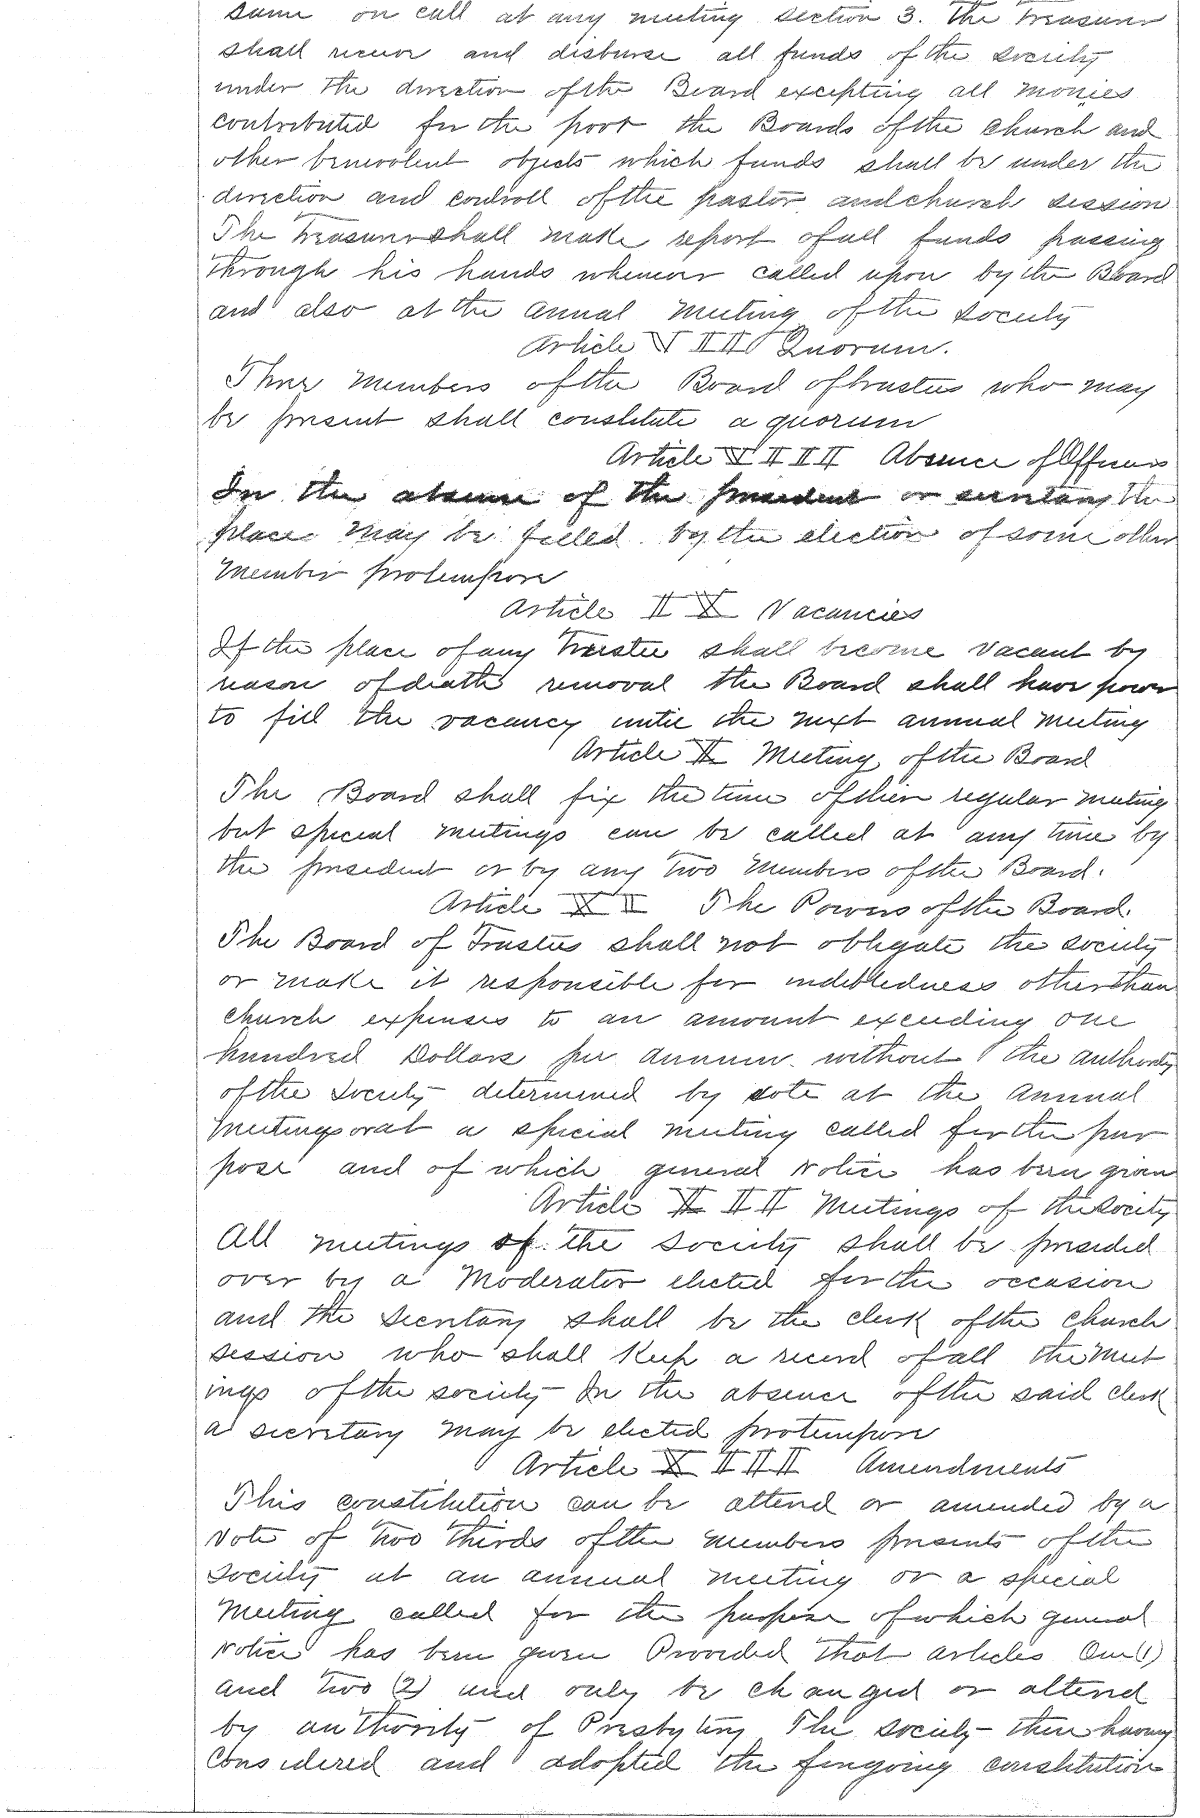 same on call at any meeting section 3. The Treasurer
shall receive and disburse all funds of the society
under the direction of the Board excepting all monies
contributed for the poor the Boards of the church and
other benevolent objects which funds shall be under the
direction and controll of the pastor and church session
The Treasurer shall make report of all funds passing
through his hands whenever called upon by the Board
and also at the annual meeting of the society
Article VIII Quorum.
Three members of the Board of trustees who may
be present shall constitute a quorum
Article VIIII Absence of Officers
In the absence of the president or secretary the
place may be filled by the election of some other
member protempore
Article IX Vacancies
If the place of any Trustee shall become vacant by
reason of death removal the Board shall have power
to fill the vacancy until the next annual meeting
Article X Meeting of the Board
The Board shall fix the time of their regular meeting
but special meetings can be called at any time by
the president or by any two members of the Board.
Article XI The Powers of the Board.
The Board of Trustees shall not obligate the society
or make it responsible for indebtedness other than
church expenses to an amount exceeding one
hundred Dollars per annum without the authority
of the society determined by vote at the annual
meetings or at a special meeting called for the pur
pose and of which general notice has been given
Article XII Meetings of the Society
All meetings of the society shall be presided
over by a Moderator elected for the occasion
and the secretary shall be the clerk of the church
session who shall keep a record of all the meet
ings of the society In the absence of the said clerk
a secretary may be elected protempore
Article XIII Amendments
This constitution can be alterd or amended by a
vote of two thirds of the members presents of the
society at an annual meeting or a special
meeting called for the purpose of which general
notice has been given Provided that articles One (1)
and two (2) and only be changed or alterd
by authority of Presbytery The society then having
considered and adopted the forgoing constitution